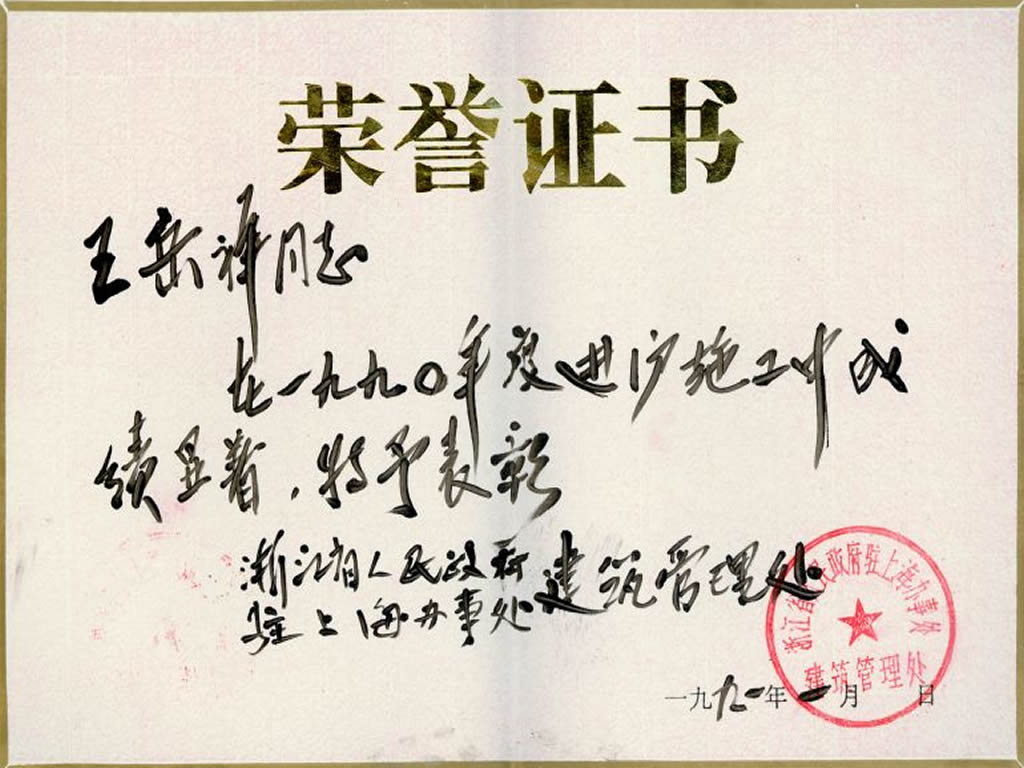 荣誉证书
王岳祥同志
在一九九〇年度进沪施工中成
绩显著，特予表彰
浙江省人民政府
驻上海办事处
建筑管理处
浙江省人民政府驻上海办事处
建筑管理处
一九九一年一月 日